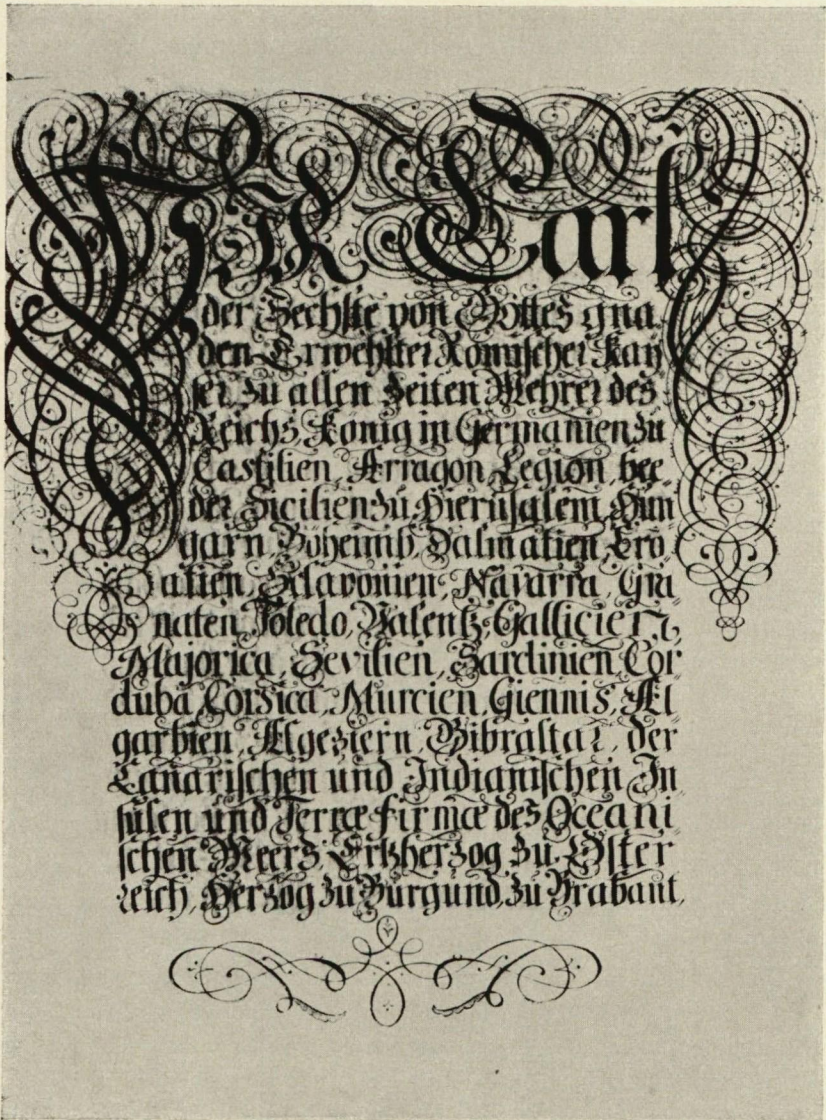 WIR Carl
der Sechste von Gottes gna
den Erwehlter Römischer Kay
ser zu allen Zeiten Mehrer des
Reichs, König in Germanien zu
Castilien, Arragon, Legion, bee
der Sicilien zu Hierusalem, Hun
garn, Böheimb, Dalmatien, Cro
atien, Sclavonien, Navarra, Gra
naten, Toledo, Valentz, Gallicien,
Majorica, Sevilien, Sardinien, Cor
duba, Corsica, Murcien, Giennis, Al
garbien, Algeziern, Gibraltar, der
Canarischen und Indianischen In
sulen und Terræ firmæ des Oceani
schen Meers, Ertzherzog zu Öster
reich, Herzog zu Burgund, zu Brabant,